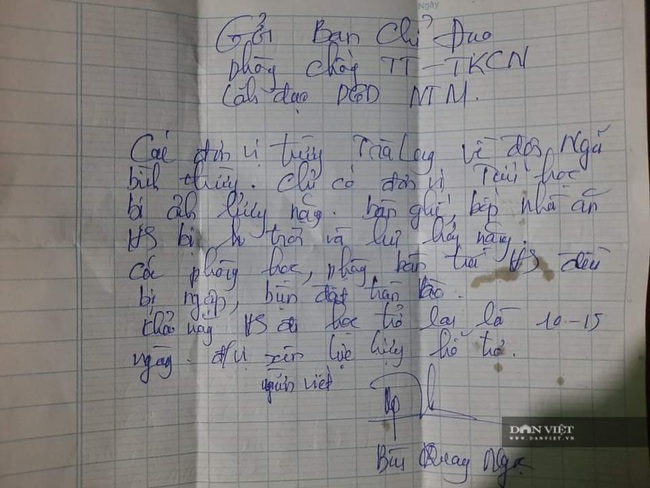 Ngày
Gửi Ban Chỉ Đạo
phòng chống TT-TKCN
Lãnh đạo PGD NTM.
Các đơn vị trường Trà Leng về đơn
bình thường. Chỉ có đơn vị Tiểu học
bị ảnh hưởng nặng. bàn ghế, bếp nhà ăn
HS bị trôi và hư hỏng nặng.
các phòng học, phòng bán trú HS đều
bị ngập, bùn đất tràn vào.
khả năng HS đi học trở lại là 10-15
ngày. hỗ trợ.
người viết
Bùi Quang Ngọc
DÂN VIỆT
WWW.DANVIET.VN